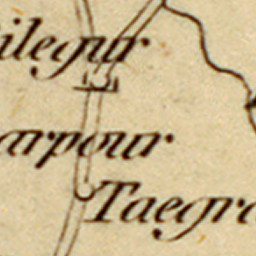 ilegur
arpour
Taegra